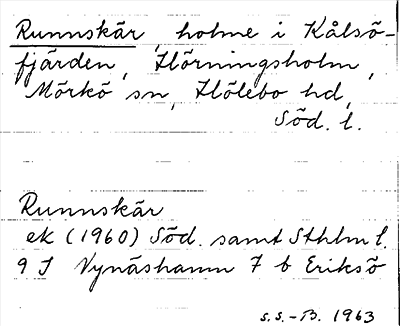 Runnskär, holme i Kålsö-
fjärden, Hörningsholm,
Mörkö sn, Hölebo hd,
Söd. l.
Runnskär
ek (1960) Söd. samt Sthlm l.
9 I Nynäshamn 7 b Eriksö
S.S.-B. 1963